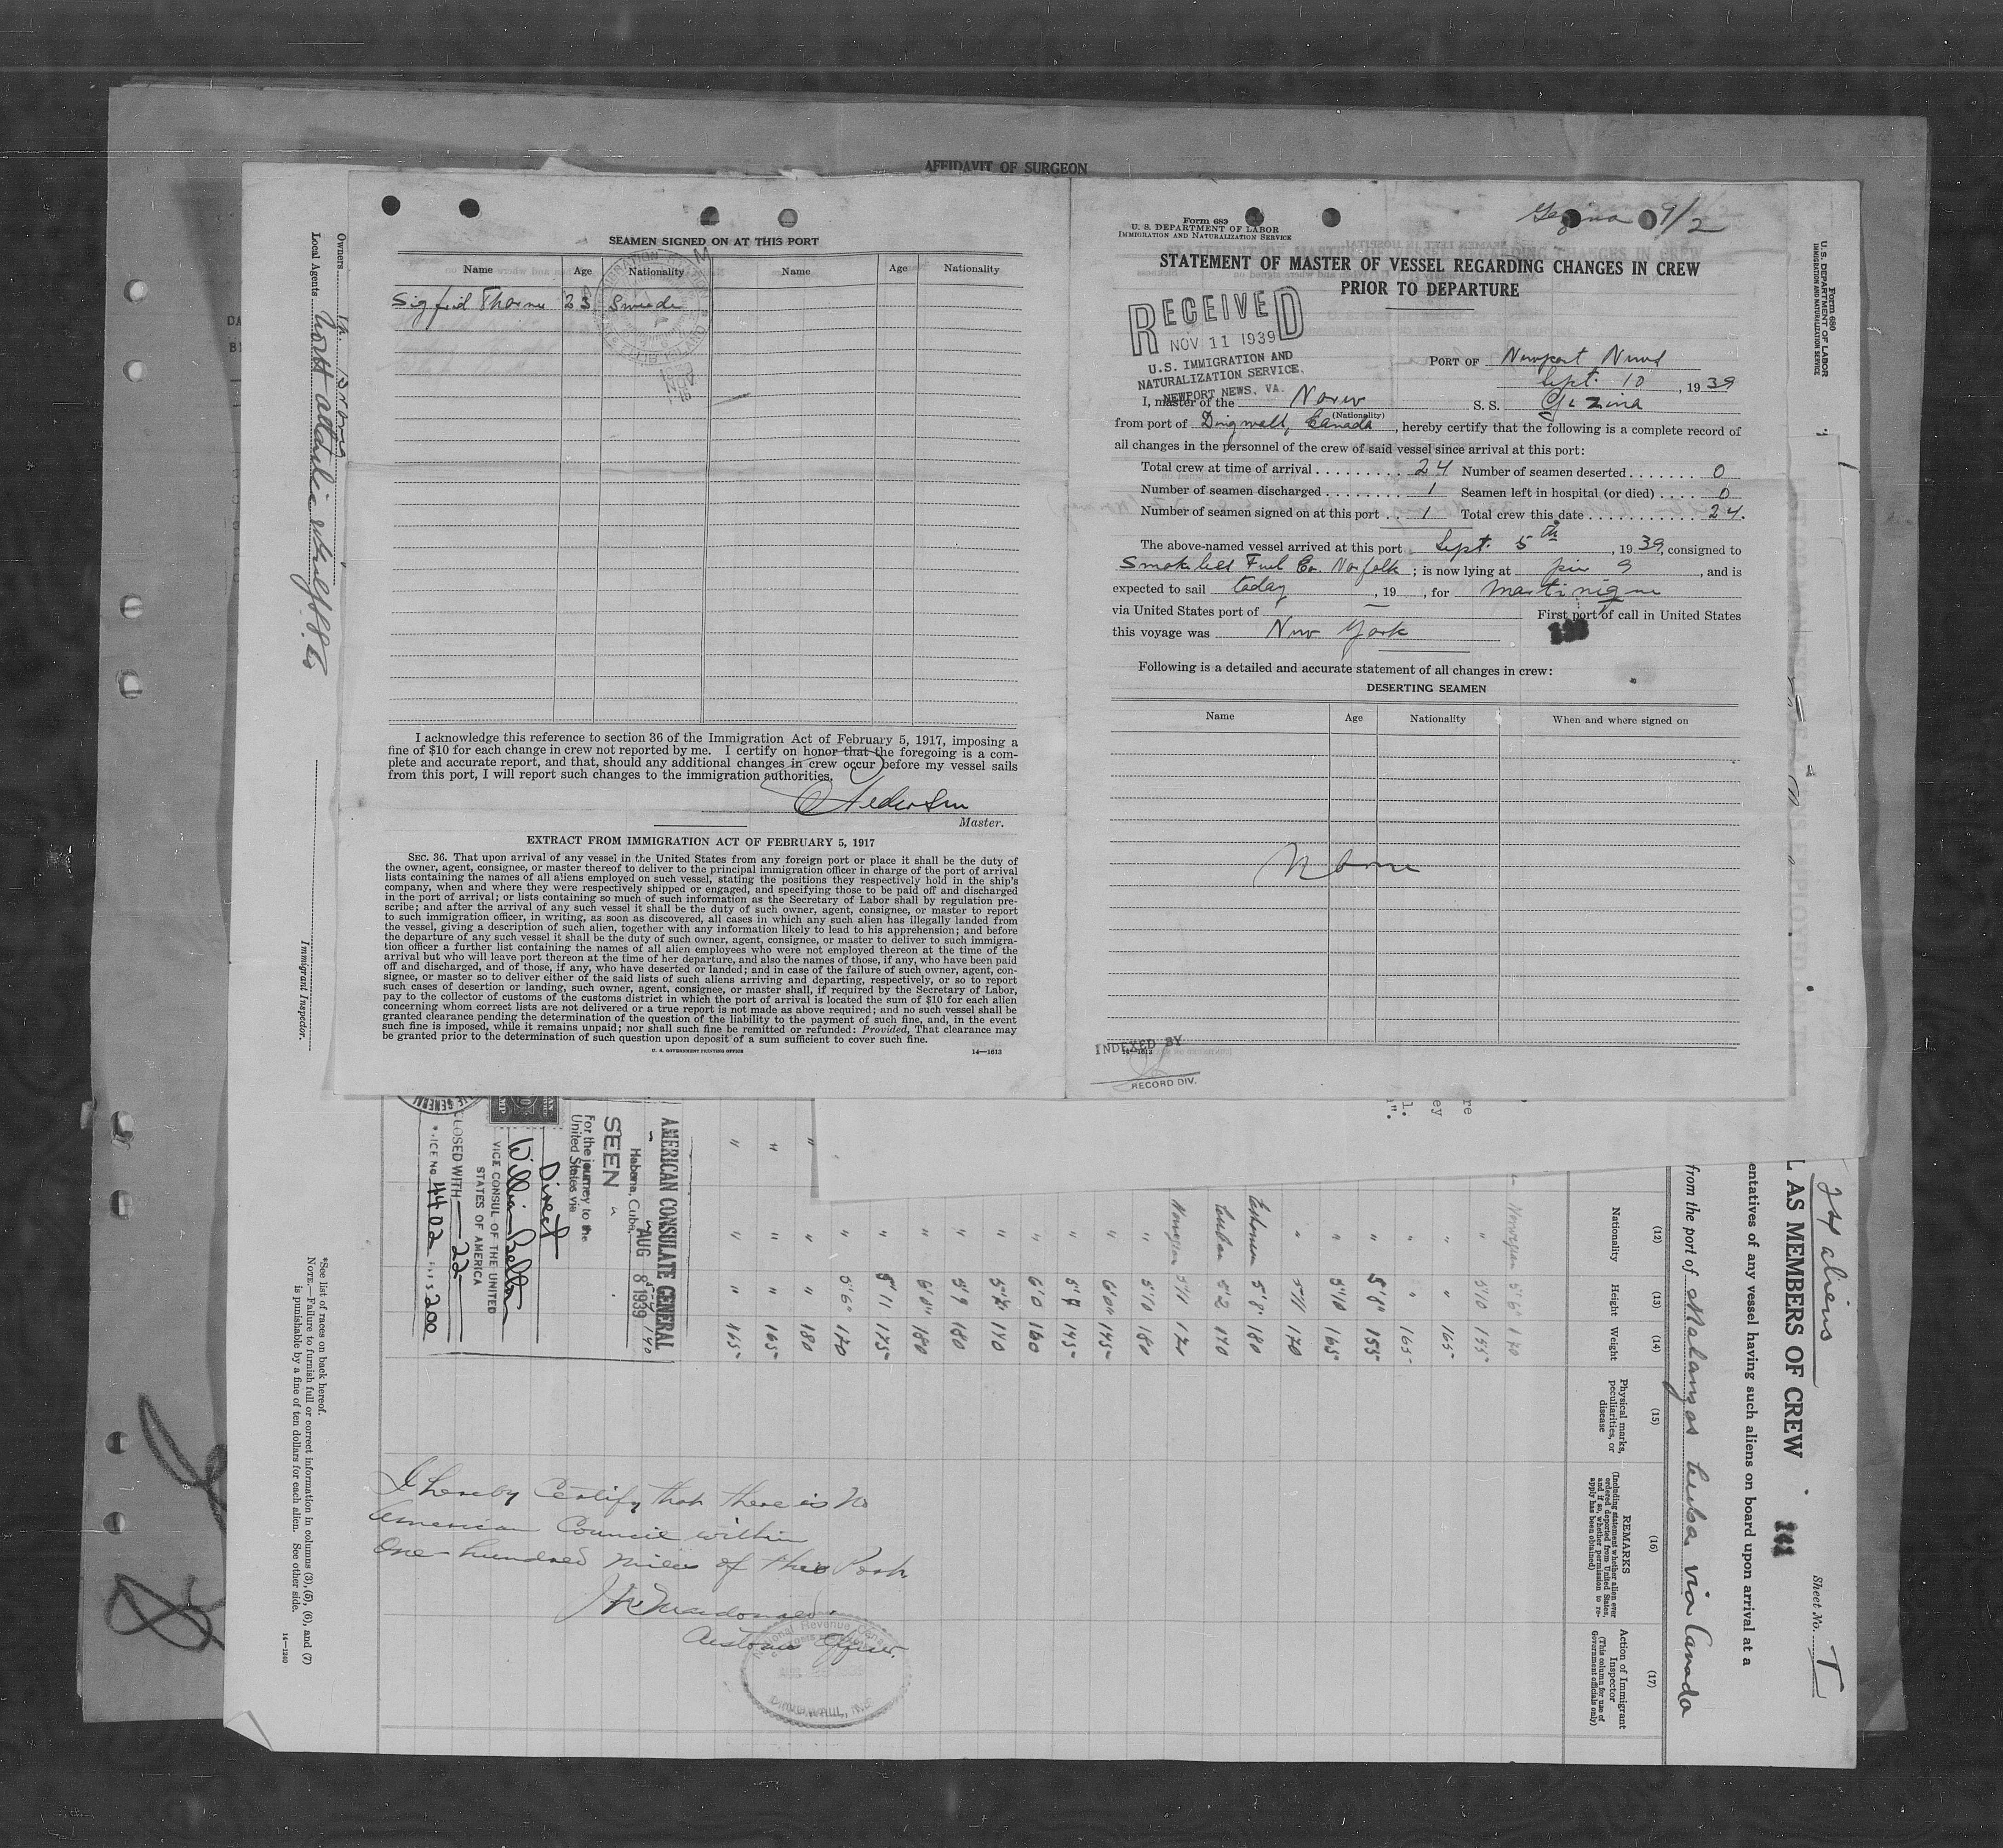 AFFIDAVIT OF SURGEON
SEAMEN SIGNED ON AT THIS PORT
Name Age Nationality Name Age Nationality
Sigfrid 23 Swede
I acknowledge this reference to section 36 of the Immigration Act of February 5, 1917, imposing a
fine of $10 for each change in crew not reported by me. I certify on honor that the foregoing is a com-
plete and accurate report, and that, should any additional changes in crew occur before my vessel sails
from this port, I will report such changes to the immigration authorities.
Master.
EXTRACT FROM IMMIGRATION ACT OF FEBRUARY 5, 1917
SEC. 36. That upon arrival of any vessel in the United States from any foreign port or place it shall be the duty of
the owner, agent, consignee, or master thereof to deliver to the principal immigration officer in charge of the port of arrival
lists containing the names of all aliens employed on such vessel, stating the positions they respectively hold in the ship's
company, when and where they were respectively shipped or engaged, and specifying those to be paid off and discharged
in the port of arrival; or lists containing so much of such information as the Secretary of Labor shall by regulation pre-
scribe; and after the arrival of any such vessel it shall be the duty of such owner, agent, consignee, or master to report
to such immigration officer, in writing, as soon as discovered, all cases in which any such alien has illegally landed from
the vessel, giving a description of such alien, together with any information likely to lead to his apprehension; and before
the departure of any such vessel it shall be the duty of such owner, agent, consignee, or master to deliver to such immigra-
tion officer a further list containing the names of all alien employees who were not employed thereon at the time of the
arrival but who will leave port thereon at the time of her departure, and also the names of those, if any, who have been paid
off and discharged, and of those, if any, who have deserted or landed; and in case of the failure of such owner, agent, con-
signee, or master so to deliver either of the said lists of such aliens arriving and departing, respectively, or so to report
such cases of desertion or landing, such owner, agent, consignee, or master shall, if required by the Secretary of Labor,
pay to the collector of customs of the customs district in which the port of arrival is located the sum of $10 for each alien
concerning whom correct lists are not delivered or a true report is not made as above required; and no such vessel shall be
granted clearance pending the determination of the question of the liability to the payment of such fine, and, in the event
such fine is imposed, while it remains unpaid; nor shall such fine be remitted or refunded: Provided, That clearance may
be granted prior to the determination of such question upon deposit of a sum sufficient to cover such fine.
U. S. GOVERNMENT PRINTING OFFICE 14—1613
Form 689
U. S. DEPARTMENT OF LABOR
IMMIGRATION AND NATURALIZATION SERVICE
Gezina 9/2
STATEMENT OF MASTER OF VESSEL REGARDING CHANGES IN CREW
PRIOR TO DEPARTURE
RECEIVED
NOV 11 1939
U.S. IMMIGRATION AND
NATURALIZATION SERVICE,
NEWPORT NEWS, VA.
PORT OF Newport News
Sept. 10, 1939
I, master of the Norw S. S. Gezina
(Nationality)
from port of Dingwall, Canada, hereby certify that the following is a complete record of
all changes in the personnel of the crew of said vessel since arrival at this port:
Total crew at time of arrival 24 Number of seamen deserted 0
Number of seamen discharged 1 Seamen left in hospital (or died) 0
Number of seamen signed on at this port 1 Total crew this date 24.
The above-named vessel arrived at this port Sept. 5th, 1939, consigned to
Smokeless Fuel Co. Norfolk; is now lying at pier 9, and is
expected to sail today, 19 , for Martinique
via United States port of First port of call in United States
this voyage was New York
Following is a detailed and accurate statement of all changes in crew:
DESERTING SEAMEN
Name Age Nationality When and where signed on
None
INDEXED BY
14—1613
RECORD DIV.
Owners
Local Agents
Immigrant Inspector.
Form 680
U. S. DEPARTMENT OF LABOR
IMMIGRATION AND NATURALIZATION SERVICE
24 aliens
L AS MEMBERS OF CREW
Sheet No. 1
entatives of any vessel having such aliens on board upon arrival at a
from the port of Matanzas Cuba via Canada
(12) Nationality
(13) Height
(14) Weight
(15) Physical marks, peculiarities, or disease
(16) REMARKS
(Including statement whether alien ever ordered deported from United States, and if so, whether permission to re-apply has been obtained)
(17) Action of Immigrant Inspector
(This column for use of Government officials only)
Norwegian 5'6" 170
" 5'10 155
" " 165
" " 165
" 5'8" 155
" 5'10 165
" 5'11 170
Estonian 5'8" 180
Cuban 5'2 140
Norwegian 5'11 172
" 5'10 180
" 6'0" 175
" 5'9 145
" 6'0 160
" 180
" 5'9 180
" 6'0" 180
" 5'11 175
" 5'6" 170
" " 180
" " 165
" " 165
AMERICAN CONSULATE GENERAL
Habana, Cuba, AUG 8 1939
SEEN
For the journey to the
United States via
Direct
William Belton
VICE CONSUL OF THE UNITED
STATES OF AMERICA
CLOSED WITH 22
4402 200
I hereby certify that there is no
American Council within
One hundred miles of this Port
J. Macdonald
Customs Officer.
*See list of races on back hereof.
NOTE.—Failure to furnish full or correct information in columns (3), (5), (6), and (7)
is punishable by a fine of ten dollars for each alien. See other side.
14—1240